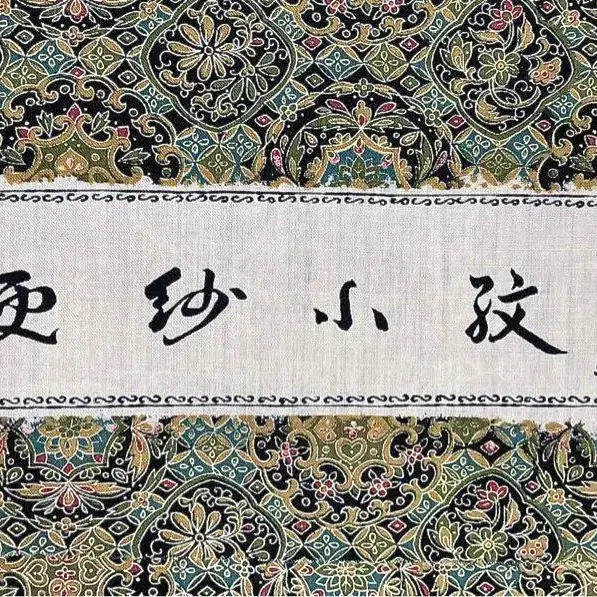 更紗小紋